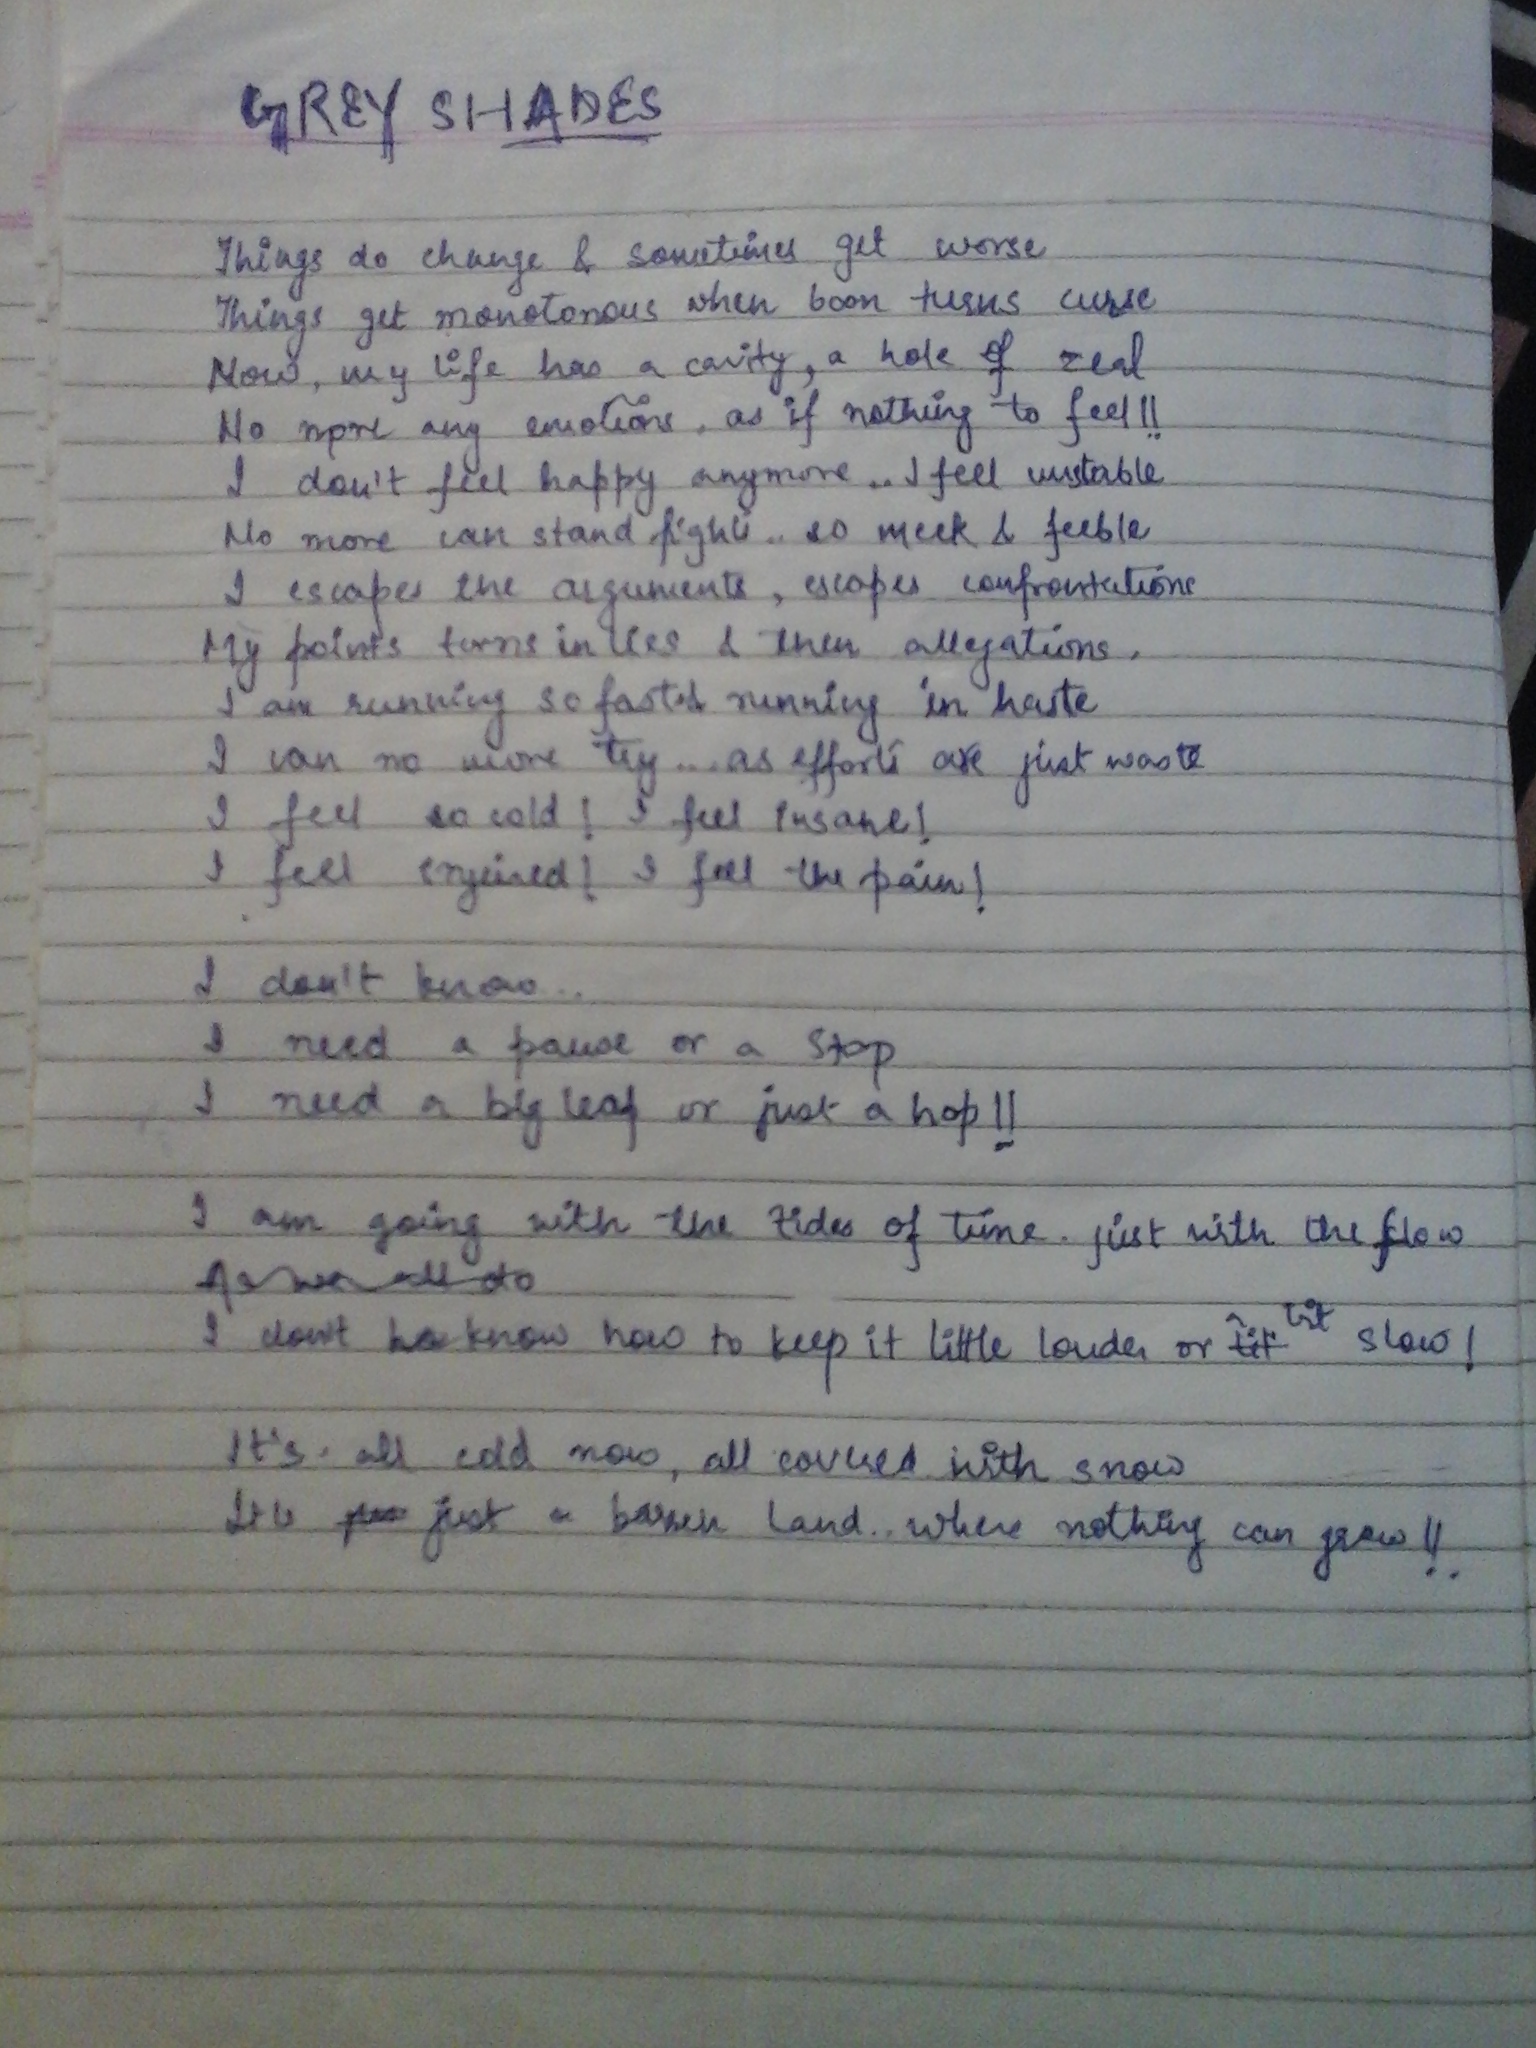 GREY SHADES
Things do change & sometimes get worse
Things get monotonous when boon turns curse
Now, my life has a cavity, a hole of zeal
No more any emotions, as if nothing to feel!!
I don't feel happy anymore.. I feel unstable
No more can stand fights.. so meek & feeble
I escapes the arguments, escapes confrontations
My points turns in lies & then allegations.
I am running so fast & running in haste
I can no more try.... as efforts are just waste
I feel so cold! I feel insane!
I feel injured! I feel the pain!
I don't know...
I need a pause or a stop
I need a big leap or just a hop!!
I am going with the tides of time. just with the flow
As we all do
I don't know how to keep it little louder or bit slow!
It's all cold now, all covered with snow
It's just a barren land.. where nothing can grow!!